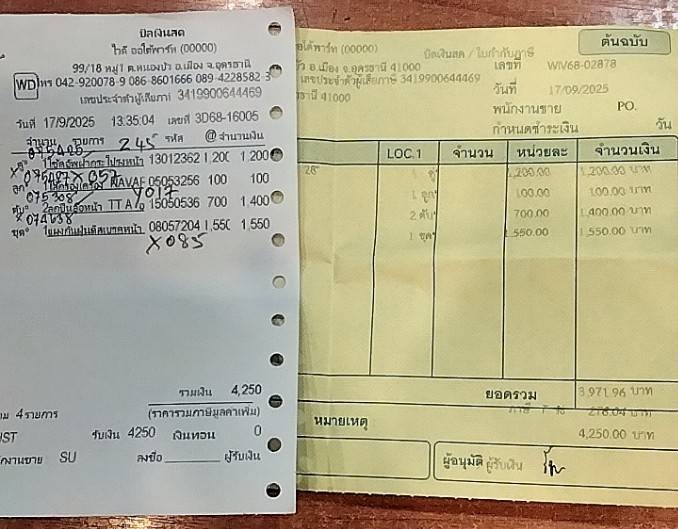 บิลเงินสด
ไวกี ออโต้พาร์ท (00000)
99/18 หมู่1 ต.หนองบัว อ.เมือง จ.อุดรธานี
WD โทร 042-920078-9 086-8601666 089-4228582-3
เลขประจำตัวผู้เสียภาษี 3419900644469
วันที่ 17/9/2025 13:35:04 เลขที่ 3D68-16005
จำนวน รายการ 245 รหัส @ จำนวนเงิน
13012362 1,200 1,200
X057
NAVAF 05053256 100 100
Y017
TTA 15050536 700 1,400
08057204 1,550 1,550
X085
รวมเงิน 4,250
4 รายการ (ราคารวมภาษีมูลค่าเพิ่ม)
รับเงิน 4250 เงินทอน 0
SU ลงชื่อ ผู้รับเงิน
ต้นฉบับ
ออโต้พาร์ท (00000)
บิลเงินสด / ใบกำกับภาษี
อ.เมือง จ.อุดรธานี 41000
เลขที่ WIV68-02878
เลขประจำตัวผู้เสียภาษี 3419900644469
วันที่ 17/09/2025
41000
พนักงานขาย PO.
กำหนดชำระเงิน วัน
LOC.1 จำนวน หน่วยละ จำนวนเงิน
1,200.00 1,200.00 บาท
1 ลูก 100.00 100.00 บาท
2 ตับ 700.00 1,400.00 บาท
1 ชุด 1,550.00 1,550.00 บาท
ยอดรวม 3,971.96 บาท
ภาษี 7 % 278.04 บาท
หมายเหตุ
4,250.00 บาท
ผู้อนุมัติ ผู้รับเงิน